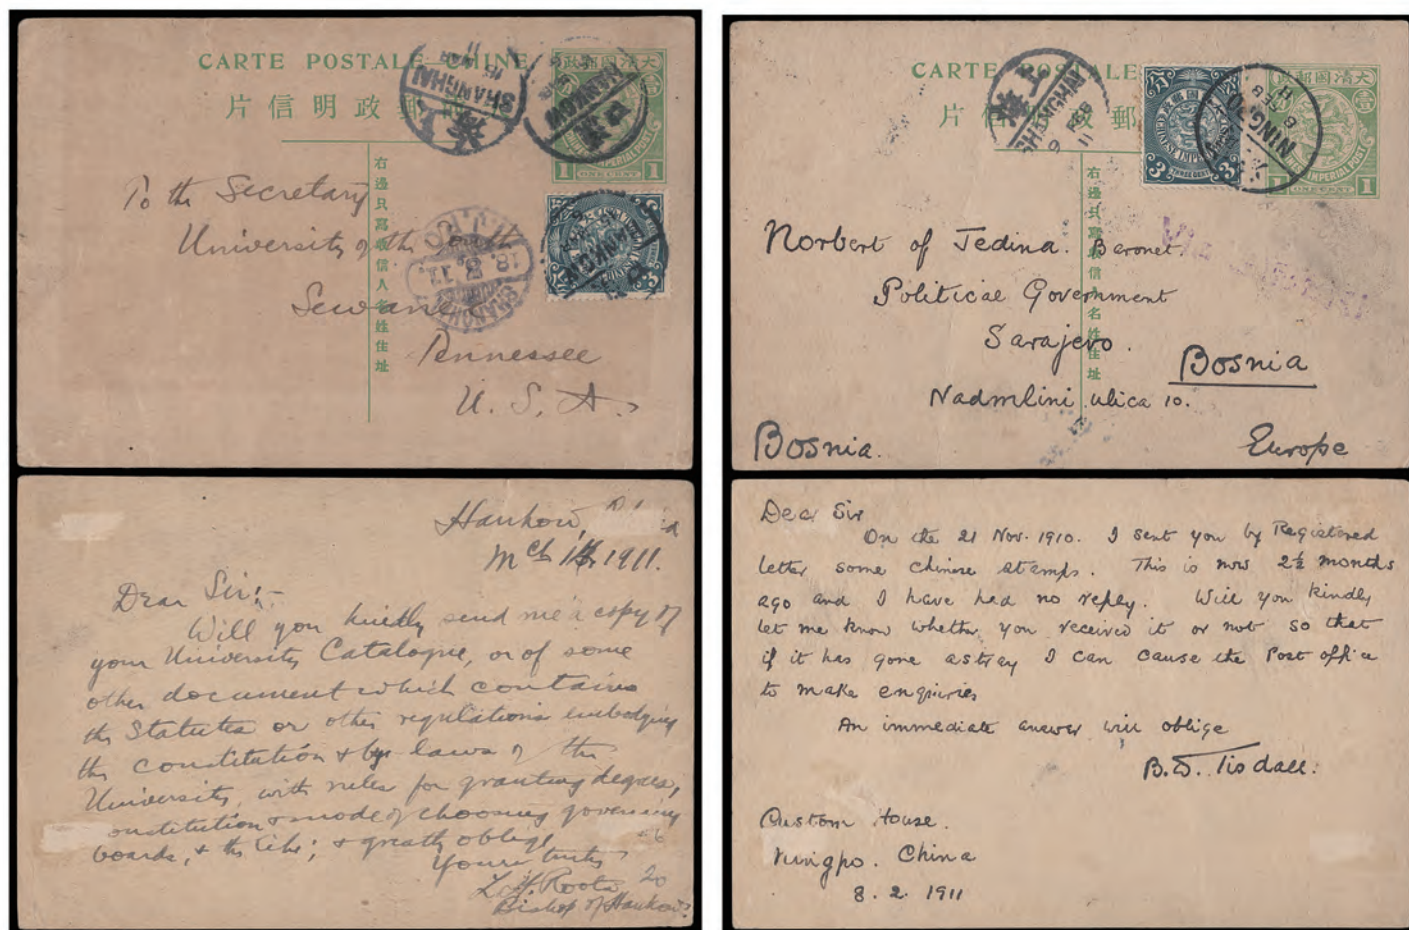 CARTE POSTALE CHINE
片信明政郵
大清國郵政
壹
CHINESE IMPERIAL POST
1 ONE CENT 1
上海
SHANGHAI
15 MAR
11
HANKOW
HANKOW
SHANGHAI
I.J.P.O
18. 3. 11
右邊只寫收信人名姓住址
To the Secretary
University of the
Sewanee
Tennessee
U. S. A.
Hankow,
Mch 1911.
Dear Sir:-
Will you kindly send me a copy of
your University Catalogue, or of some
other document which contains
the Statutes or other regulations embodying
the constitution & by laws of the
University, with rules for granting degrees,
constitution & mode of choosing governing
boards, & the like; & greatly oblige
Yours truly
L. H. Roots
Bishop of Hankow.
20
CARTE POSTALE
片信 政郵
大清國郵政
壹
CHINESE IMPERIAL POST
1 ONE CENT 1
CHINESE IMPERIAL
3 THREE CENTS 3
上海
SHANGHAI
9 FEB
11
NINGPO
8 FEB
11
右邊只寫收信人名姓住址
Via
Norbert of Jedina. Baronet.
Political Government
Sarajevo.
Bosnia
Nadmlini ulica 10.
Bosnia.
Europe
Dear Sir
On the 21 Nov. 1910. I sent you by Registered
letter some Chinese stamps. This is now 2½ months
ago and I have had no reply. Will you kindly
let me know whether you received it or not so that
if it has gone astray I can cause the Post office
to make enquiries
An immediate answer will oblige
B.D. Tisdall.
Custom House.
Ningpo. China
8. 2. 1911